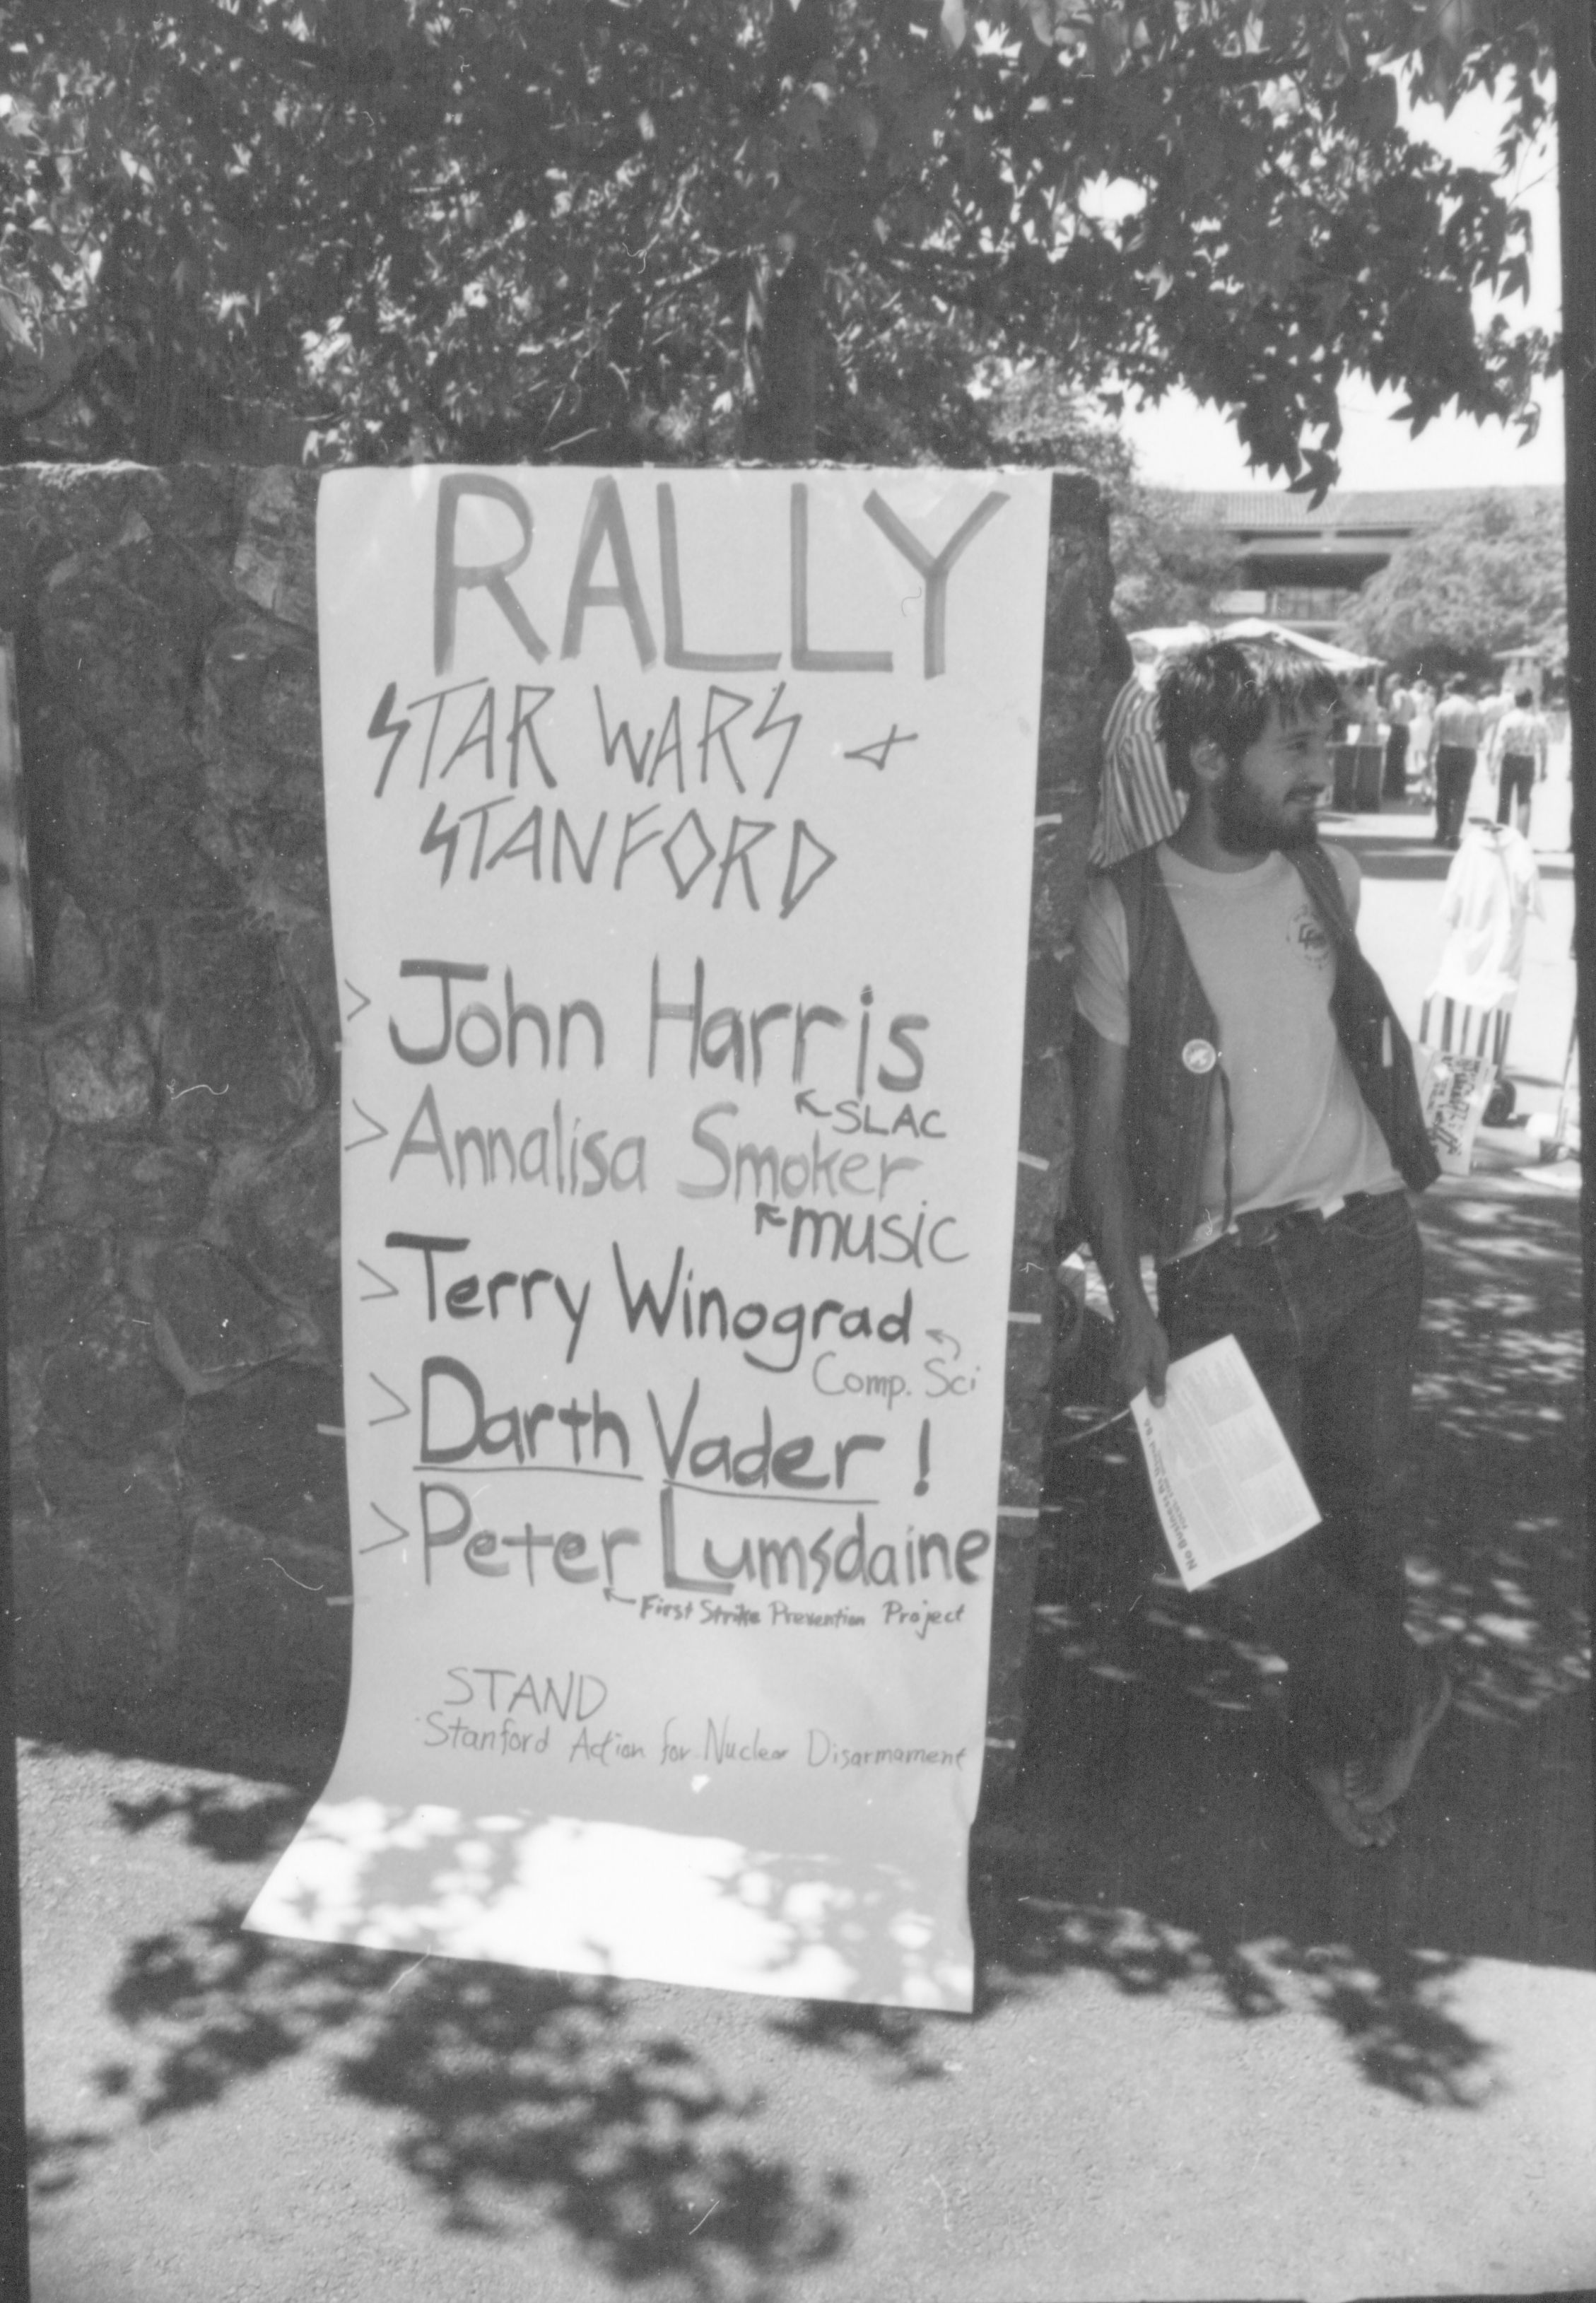 RALLY
STAR WARS &
STANFORD
> John Harris
↖ SLAC
> Annalisa Smoker
↖ music
> Terry Winograd
Comp. Sci
> Darth Vader !
> Peter Lumsdaine
↖ First Strike Prevention Project
STAND
Stanford Action for Nuclear Disarmament